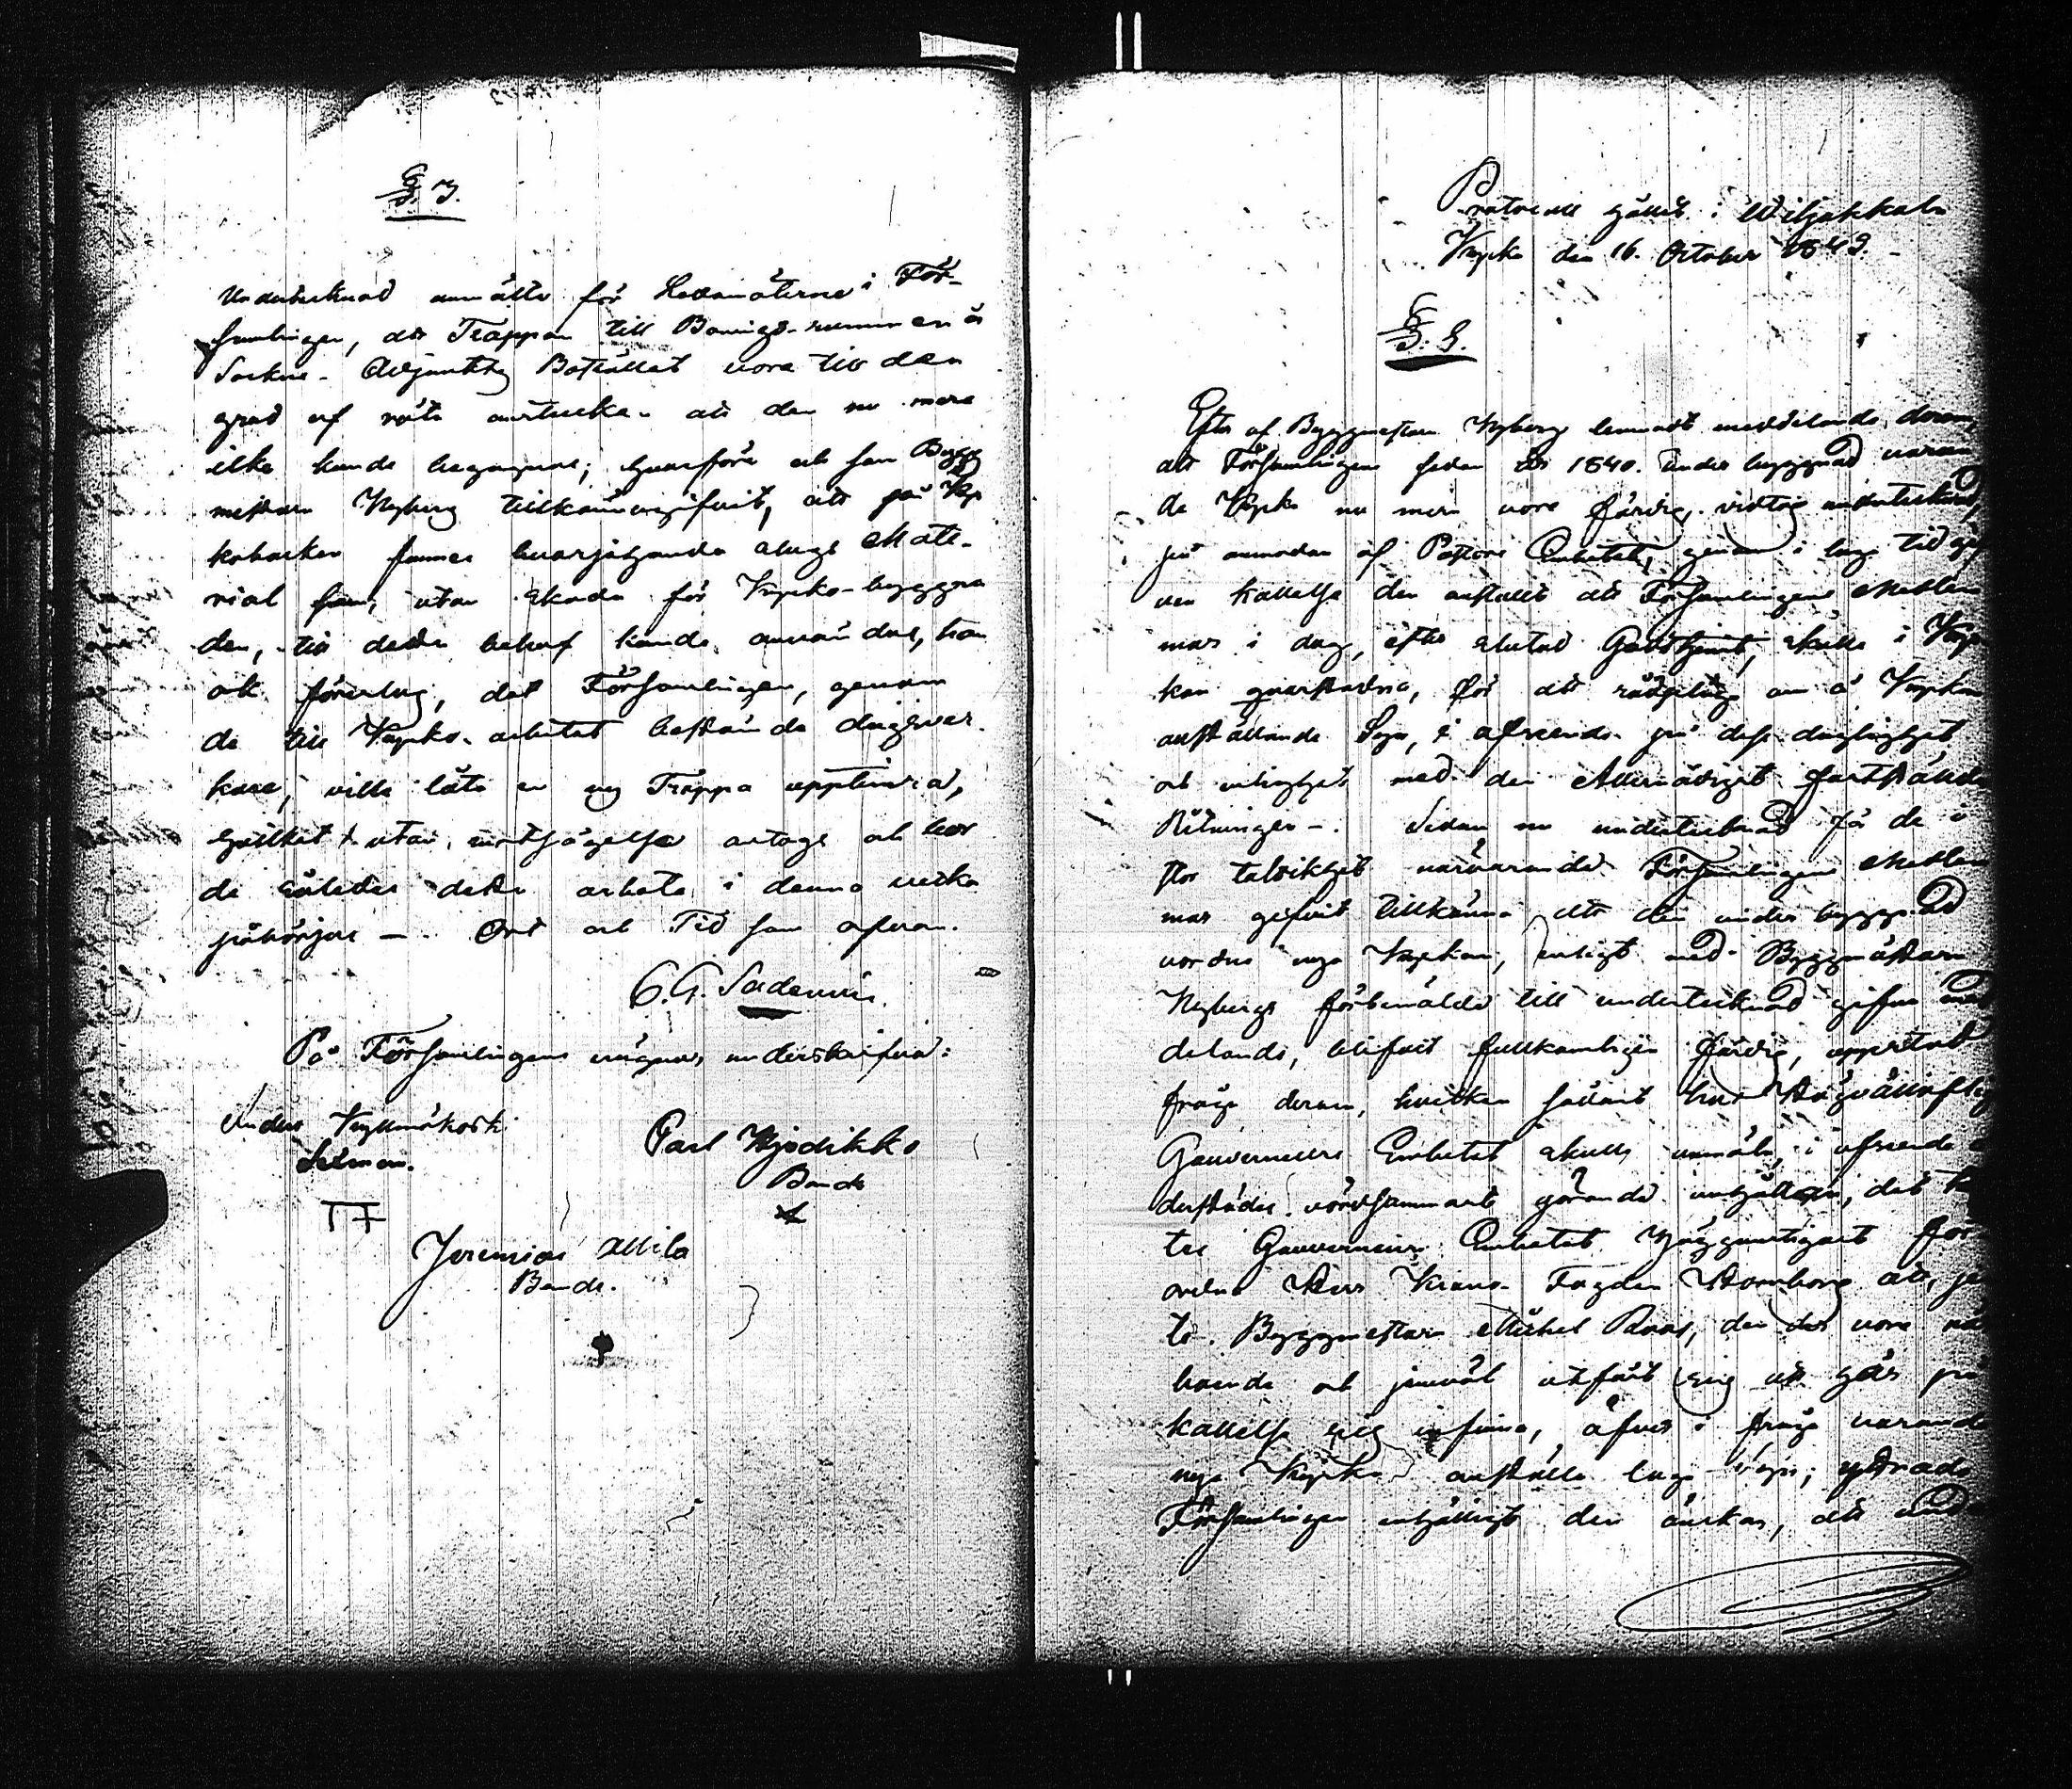 §. 3.
Undertecknad anmälte för Ledamöterne i För-
samlingen, att Trappan till Bonings-rummen å
Sockne-Adjunkts Bostället vore till den
grad af röta anstucken att den nu mera
icke kunde begagnas; hvarföre och som Bygg
mästaren Nyberg tillkännagifvit, att på Kyr
kobacken funnes hvarjehanda slags Mate-
rial som, utan skada för Kyrko-byggna
den, till detta behof kunde användas, han
ock föreslog, det Församlingen, genom
de till Kyrko-arbetet bestämde dagsver
kare, ville låta en ny Trappa upptimra,
hvilket utan motsägelse antogs och bor
de således detta arbete i denna vecka
påbörjas —. Ort och Tid som ofvan.
C. G. Sadenius.
På Församlingens vägnar, underskrifva:
Anders Kyllmäkoski
Selman.
Carl Kjodikko
Bonde
Jeremias Allila
Bonde.
Protocoll hållit i Wiljakkala
Kyrka den 16. October 1843.
§. 1.
Efter af Byggmästaren Nyberg lemnadt meddelande, derom
att Församlingens sedan År 1840. under byggnad varan
de Kyrka nu mera vore färdig, vidtog undertecknad,
på anmodan af Pastors Embetet, genom i laga tid gif
ven kallelse den anstallt att Församlingens Medlem
mar i dag, efter slutad Gudstjenst, skulle i Kyr
kan qvarstadna, för att rådplägа om å Kyrkan
anställande Syn, i afseende på dess duglighet
och enlighet med den Allernådigst fastställde
Ritningen —. Sedan nu undertecknad för de i
stor talrikhet närvarande Församlingens Medlem
mar gifvit tillkänna att den under byggnad
vordne nya Kyrkan, enligt med Byggmästaren
Nybergs förbemälde till undertecknad gifne med
delande, blifvit fullkomligen färdig, uppstod
fråga derom, hvilken såsom hos Högvällofliga
Gouverneurs Embetet skulle anmäla, i afseende å
derstädes vördsammast görande anhållan, det
Gouverneurs Embetet Höggunstigast för
ordna Herr Krono-Fogden Stornborg att, jem
te Byggmästare Michel Roos, den der vore när
boende och jemväl utfäst sig att här på
kallelse sig infinna, öfver i fråga varande
nya Kyrka anställa laga syn; yttrade
Församlingen enhälligt den önskan, att under